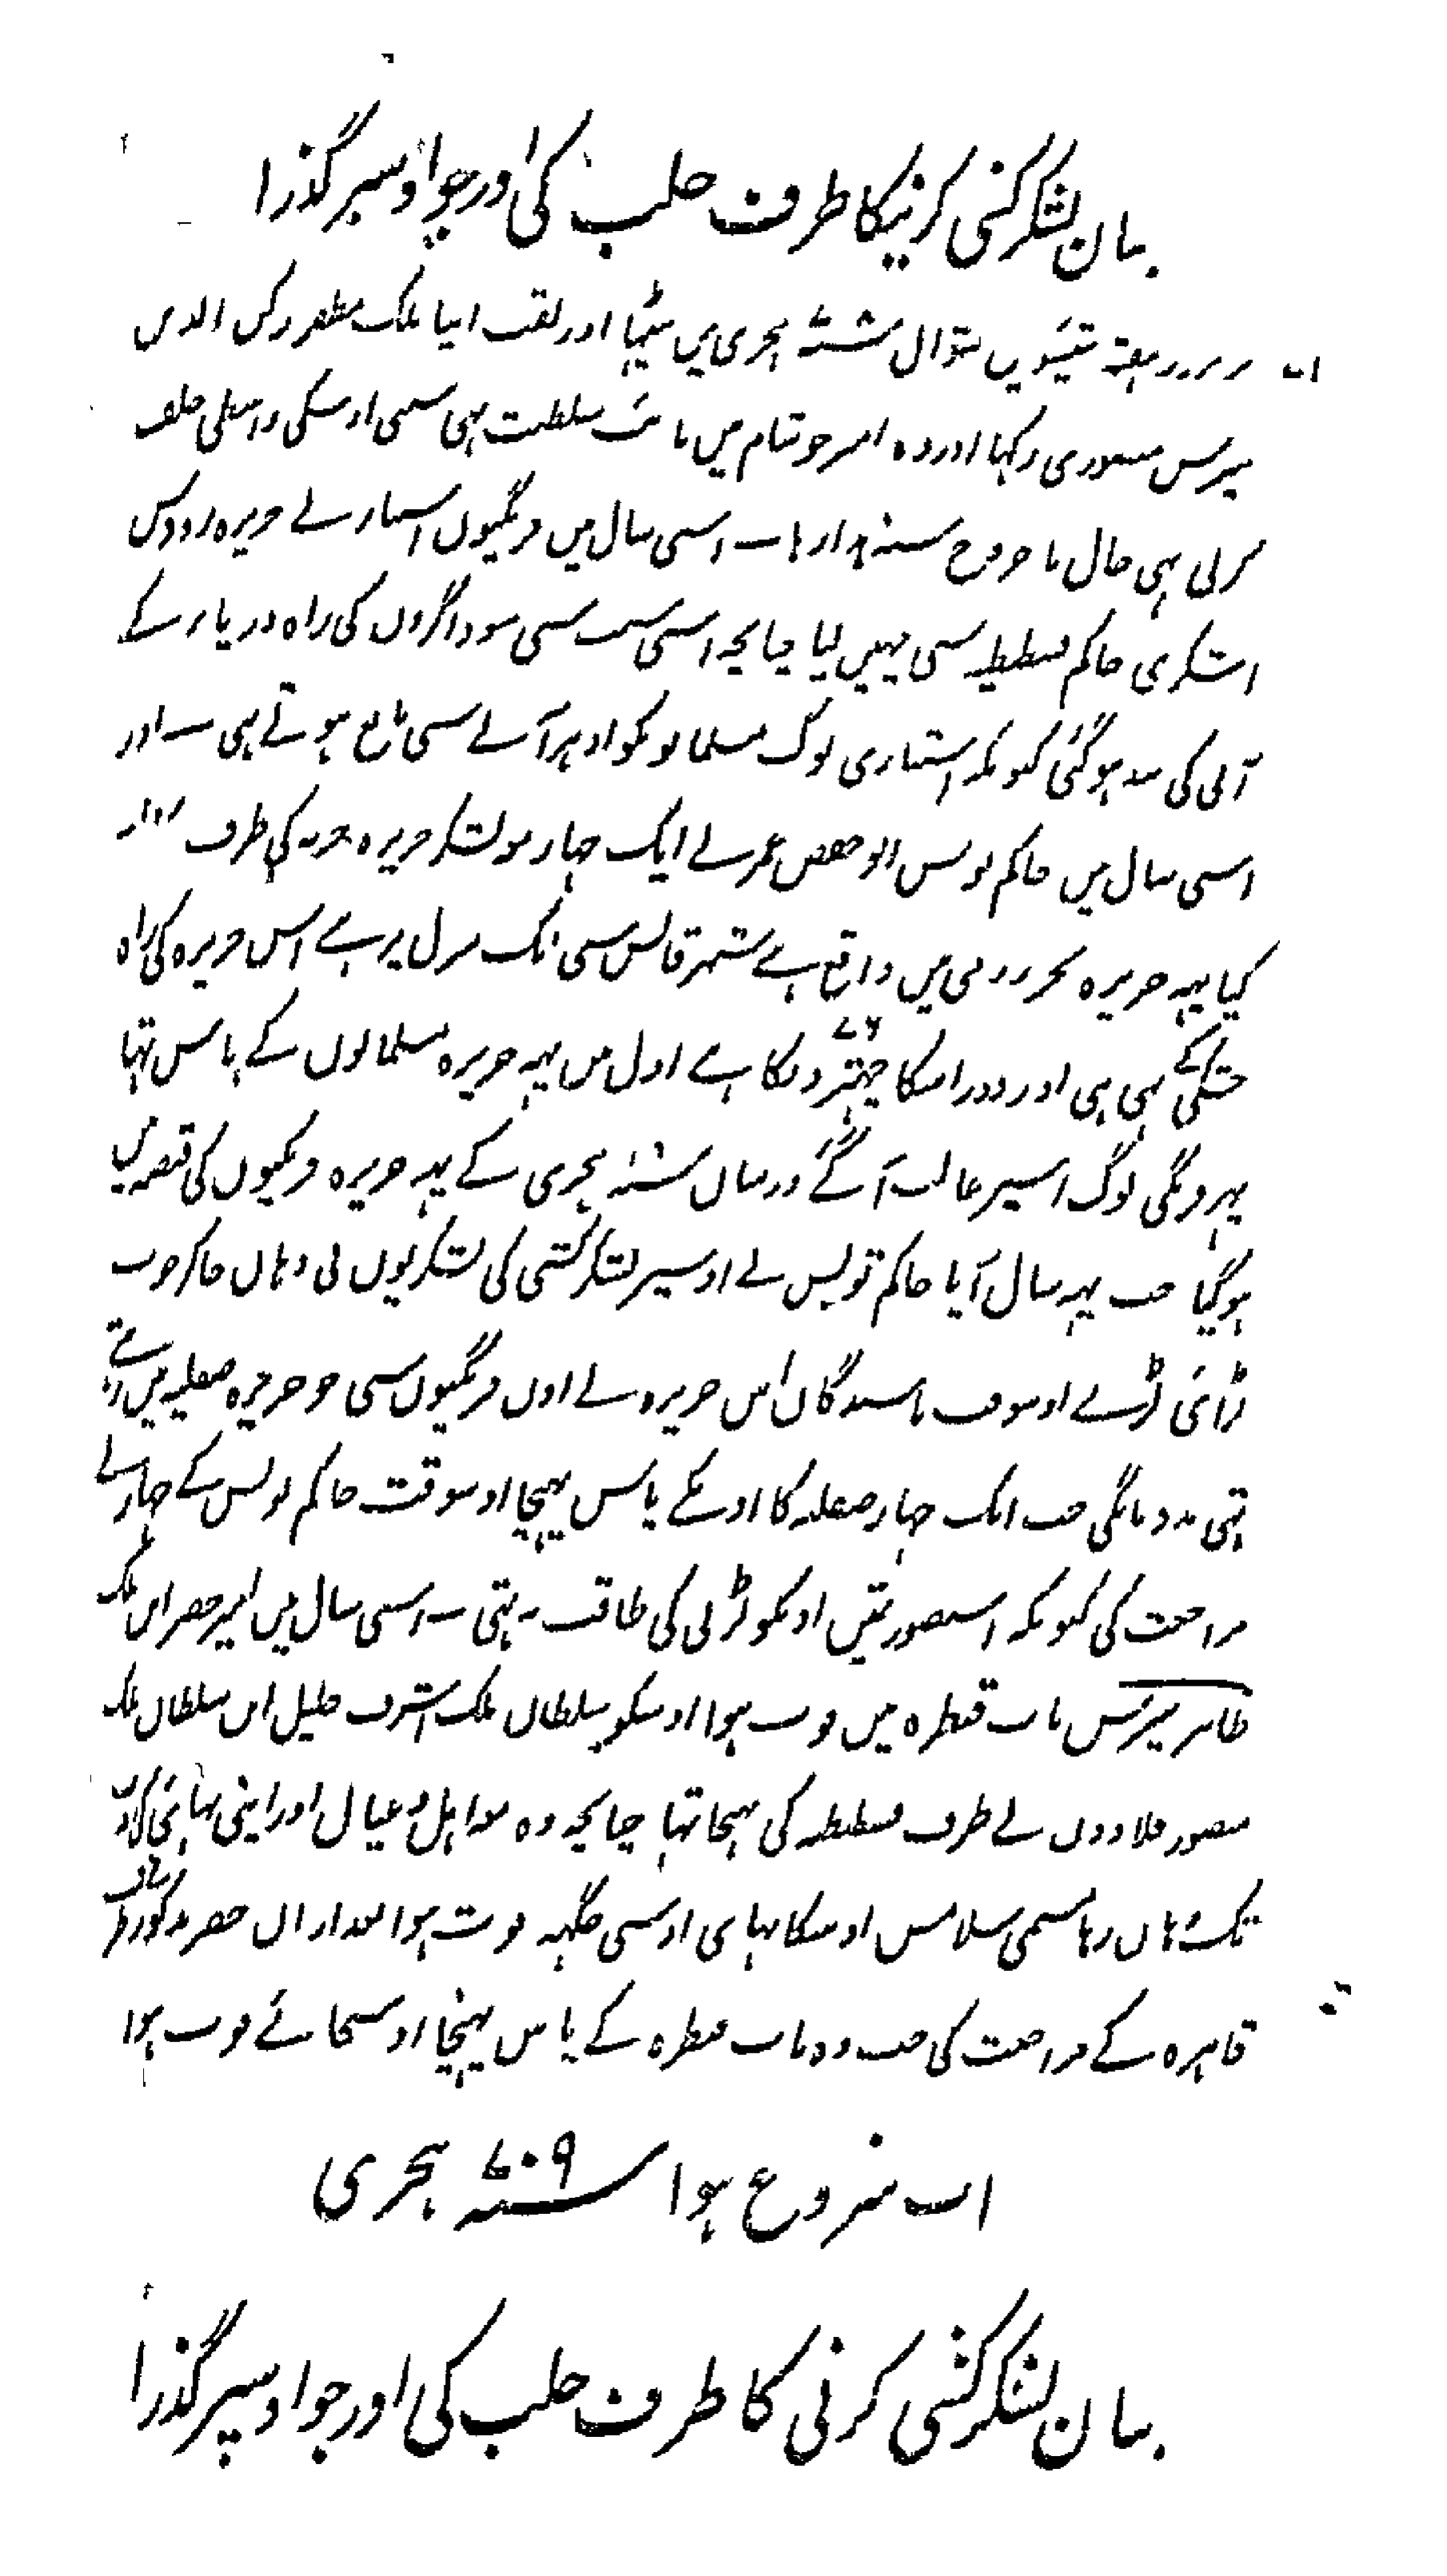 بیان لشکرکشی کرنیکا طرف حلب کی اور جو اوسپر گذرا
روز ہفتہ تیئیسویں شوال سنہ ہجری میں بیٹھا اور لقب اپنا ملک مظفر رکن الدین
بیبرس منصوری رکہا اور وہ امیر جو شام میں نائب سلطنت ہی سبھی اوسکی واسطی حلف
کرلی ہی حال اسی سال میں فرنگیوں اسبتار نے جزیرہ رودس
اشکری حاکم قسطنطنیہ سی چہین لیا چنانچہ اسی سبب سی سوداگروں کی راہ دریا کے
آنی کی بند ہوگئی کیونکہ استباری لوگ مسلمانونکو ادہر آنے سی مانع ہوتے ہی اور
اسی سال میں حاکم تونس ابو حفص عمر نے ایک جہاز مو لشکر جزیرہ جربہ کی طرف
کیا یہہ جزیرہ بحر روم میں واقع ہے شہر قابس سی ایک منزل پر ہے اس جزیرہ کی راہ
خشکی کی ہی اور دور اسکا چہتر میلکا ہے اول میں یہہ جزیرہ مسلمانوں کے پاس تہا
پہر فرنگی لوگ اسپر غالب آگئے درمیان سنہ ہجری کے یہہ جزیرہ فرنگیوں کی قبضہ میں
ہوگیا جب یہہ سال آیا حاکم تونس نے اوسپر لشکر کشی کی لشکریوں نی وہاں جاکر خوب
لڑائی لڑے اوسوقت باشندگان اس جزیرہ نے اون فرنگیوں سی جو جزیرہ صقلیہ میں رہتے
تہی مدد مانگی جب ایک جہاز صقلیہ کا اونکے پاس پہنچا اوسوقت حاکم تونس کے جہاز نے
مراجعت کی کیونکہ اسصورتیں اونکو لڑنی کی طاقت نہ تہی اسی سال میں امیر خضر ابن ملک
ظاہر بیبرس باب قنطرہ میں فوت ہوا اوسکو سلطان ملک اشرف خلیل ابن سلطان ملک
منصور قلاوون نے طرف قسطنطنیہ کی بہیجا تہا چنانچہ وہ مو اہل و عیال اور اپنی بہائی
تک وہاں رہا مسمی سلامش اوسکا بہائی اوسی جگہہ فوت ہوا بعد ازاں خضر مذکور نے طرف
قاہرہ کے مراجعت کی جب وہ باب قنطرہ کے پاس پہنچا اوسجائے فوت ہوا
اب شروع ہوا سنہ ۷۰۹ ہجری
بیان لشکر کشی کرنی کا طرف حلب کی اور جو اوسپر گذرا